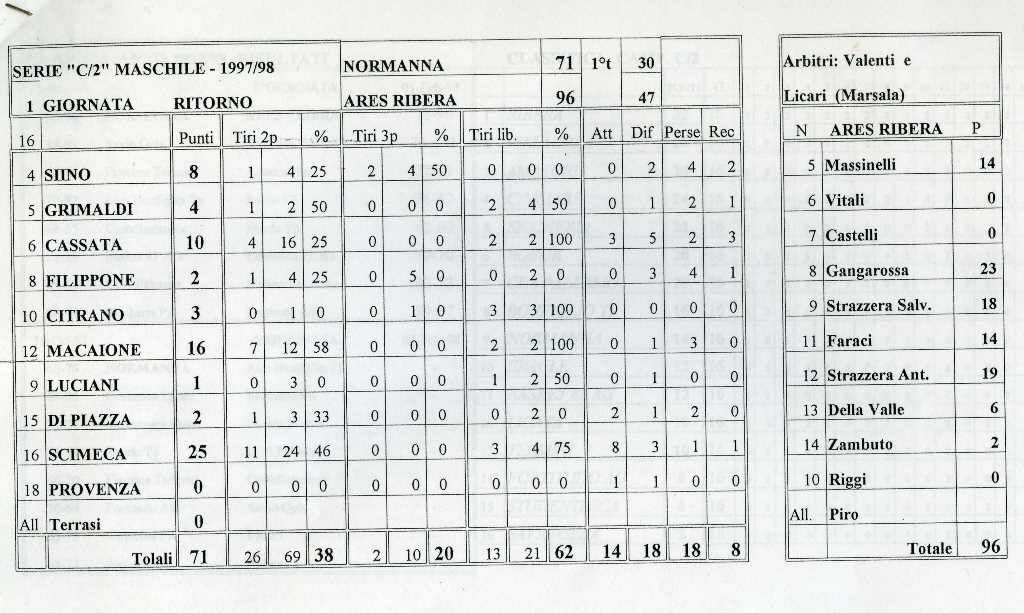 SERIE "C/2" MASCHILE - 1997/98 NORMANNA 71 1°t 30
1 GIORNATA RITORNO ARES RIBERA 96 47
16 Punti Tiri 2p % Tiri 3p % Tiri lib. % Att Dif Perse Rec
4 SIINO 8 1 4 25 2 4 50 0 0 0 0 2 4 2
5 GRIMALDI 4 1 2 50 0 0 0 2 4 50 0 1 2 1
6 CASSATA 10 4 16 25 0 0 0 2 2 100 3 5 2 3
8 FILIPPONE 2 1 4 25 0 5 0 0 2 0 0 3 4 1
10 CITRANO 3 0 1 0 0 1 0 3 3 100 0 0 0 0
12 MACAIONE 16 7 12 58 0 0 0 2 2 100 0 1 3 0
9 LUCIANI 1 0 3 0 0 0 0 1 2 50 0 1 0 0
15 DI PIAZZA 2 1 3 33 0 0 0 0 2 0 2 1 2 0
16 SCIMECA 25 11 24 46 0 0 0 3 4 75 8 3 1 1
18 PROVENZA 0 0 0 0 0 0 0 0 0 0 1 0 0
All Terrasi 0
Tolali 71 26 69 38 2 10 20 13 21 62 14 18 18 8
Arbitri: Valenti e
Licari (Marsala)
N ARES RIBERA P
5 Massinelli 14
6 Vitali 0
7 Castelli 0
8 Gangarossa 23
9 Strazzera Salv. 18
11 Faraci 14
12 Strazzera Ant. 19
13 Della Valle 6
14 Zambuto 2
10 Riggi 0
All. Piro
Totale 96